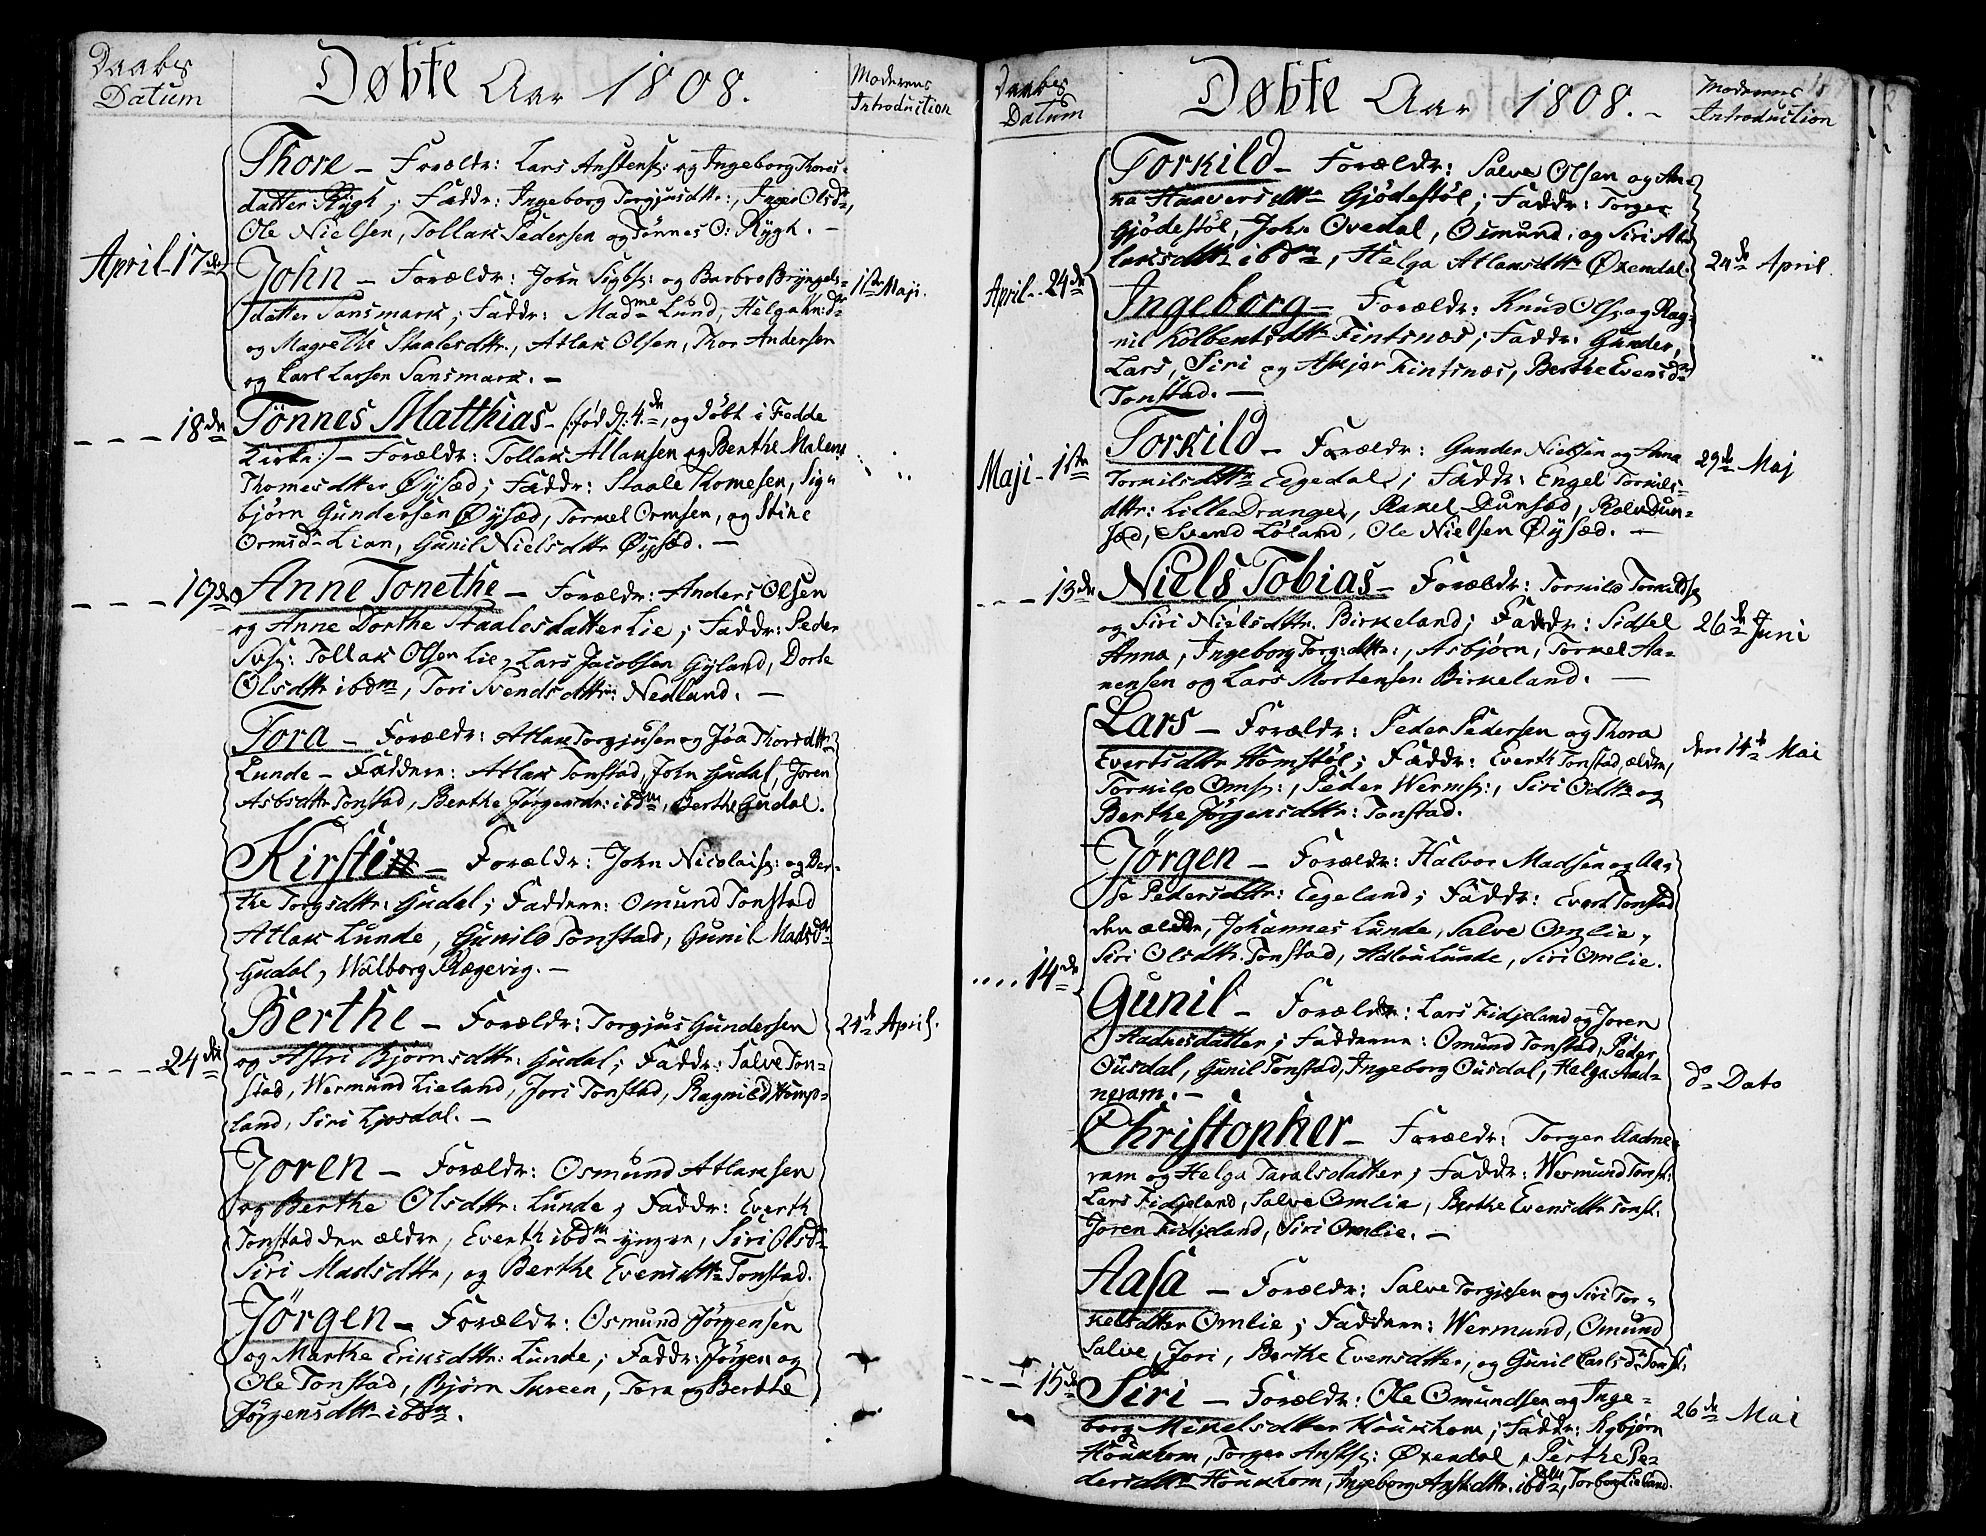 Daabs
Datum
Døbte Aar 1808.
Moderens
Introduction
Thore – Forældr: Lars Anstens: og Ingeborg Thores-
datter Rygh; Faddr: Ingeborg Torgjusdtr:, Inger Olsdr,
Ole Nielsen, Tollak Pedersen og Tønnes O: Rygh. –
April - 17de
John – Forældr: John Sigbs: og Barbro Bryngels-
1ste Maji.
datter Sansmark; Faddr: Madme Lund, Helga Kndr
og Magrethe Staalesdttr., Atlak Olsen, Thor Andersen
og Carl Larsen Sansmark. –
- - - 18de
Tønnes Matthias – (: fød d: 4de, og døbt i Fedde
Kirke :) – Forældr: Tollak Atlaksen og Berthe Malene
Thomesdtter Øysæd; Faddr: Staale Thomesen, Sig-
bjørn Gundersen Øysæd, Tormel Ormsen, og Stine
Ormsdr Lian, Gunil Nielsdttr Øysæd. –
- - - 19de
Anne Tonethe – Forældr: Anders Olsen
og Anne Dorthe Staalesdatter Lie; Faddr: Peder
Tollak Olsen Lie, Lars Jacobsen Gyland, Dorte
Olsdttr ibdm, Tori Svendsdttr: Nedlund. –
Tora – Forældr: Atlak Torgjusen og Joa Thorsdttr
Lunde – Faddere: Atlak Tonstad, John Gudal, Joren
Asbsdttr Tonstad, Berthe Jørgensdr: ibdm, Berthe Gudal.
Kirstin – Forældr: John Nicolais: og Ber-
the Torgsdttr: Gudal; Faddere: Omund Tonstad
Atlak Lunde, Gunild Tonstad, Gunil Madsdr
Gudal, Walborg Rægevig. –
Berthe – Forældr: Torgjus Gundersen
24de April.
og Astri Bjørnsdttr: Gudal; Faddr: Salve Ton-
- - - - - 24de
stad, Wermund Lieland, Jori Tonstad, Ragnild Homp-
land, Siri Ljosdal. –
Joren – Forældr: Osmund Atlaksen
og Berthe Olsdttr: Lunde; Faddr: Everth
Tonstad den ældre, Everth ibdm yngre, Siri Olsdr
Siri Madsdttr, og Berthe Evensdttr Tonstad.
Jørgen – Forældr: Osmund Jørgensen
og Marthe Eriksdttr: Lunde; Faddr: Jørgen og
Ole Tonstad, Bjørn Sureen, Tora og Berthe
Jørgensdttr ibdm.
Daabs
Datum
Døbte Aar 1808. –
Moderens
Introduction
Torkild – Forældr: Salve Olsen og An-
na Haaversdttr Gjødestøl; Faddr: Torger
Gjødestøl, John Ovedal, Osmund, og Siri At-
laksdttr ibdm, Helga Atlaksdttr Øxendal.
24de April.
April - 24de
Ingeborg – Forældr: Knud Ols: og Rag-
nil Kolbentsdttr Fintsnæs; Faddr: Gunder,
Lars, Siri og Askjer Fintsnæs, Berthe Evensdr
Tonstad. –
Torkild – Forældr: Gunder Nielsen og Anna
29de Maj
Maji - 1ste
Tornilsdttr Eegedal; Faddr: Engel Tornils-
dttr: Lille Drangei, Rakel Dunsæd, Rolv Dun-
sæd, Svend Løland, Ole Nielsen Øysæd. –
- - - 13de
Niels Tobias – Forældr: Tornils Torkilds:
og Siri Nielsdttr. Birkeland; Faddr: Sidsel
26de Juni
Anna, Ingeborg Torg:dttr:, Asbjørn, Tormel Aa-
nensen og Lars Mortensen Birkeland. –
Lars – Forældr: Peder Pedersen og Thora
den 14de Mai
Evertsdttr Homstøl; Faddr: Everth Tonstad, ældre,
Tornils Oms:, Peder Werms:, Siri Odttr og
Berthe Jørgensdttr: Tonstad.
Jørgen – Forældr: Halvor Madsen og Aa-
se Pedersdttr: Eegeland; Faddr: Evert Tonstad
den ældre, Johannes Lunde, Salve Omlie,
Siri Olsdttr. Tonstad, Adlou Lunde, Siri Omlie.
.... 14de
Gunil – Forældr: Lars Fidjeland og Joren
Aadnesdatter; Faddere: Omund Tonstad, Peder
Ousdal, Gunil Tonstad, Ingeborg Ousdal, Helga Aad-
neram. –
do Dato
Christopher – Forældr: Torger Aadne-
ram og Helga Taralsdatter; Faddr: Wermund Tonst:
Lars Fidjeland, Salve Omlie, Berthe Evensdttr Tonst.
Joren Fidjeland, Siri Omlie. –
Aasa – Forældr: Salve Torgjssen og Siri Tor-
kelsdtter Omlie; Faddere: Wermund, Omund
Salve, Jori, Berthe Evensdtter, og Gunil Carlsdr Tonst.
- - - 15de
Siri – Forældr: Ole Omundsen og Inge-
26de Mai
borg Mikelsdtter Houkhom; Faddr: Sigbjørn
Houkhom, Torger Ansts: Øxendal, Berthe Pe-
dersdttr Houkhom, Ingeborg Anstdttr. ibdm, Torborg Lieland.